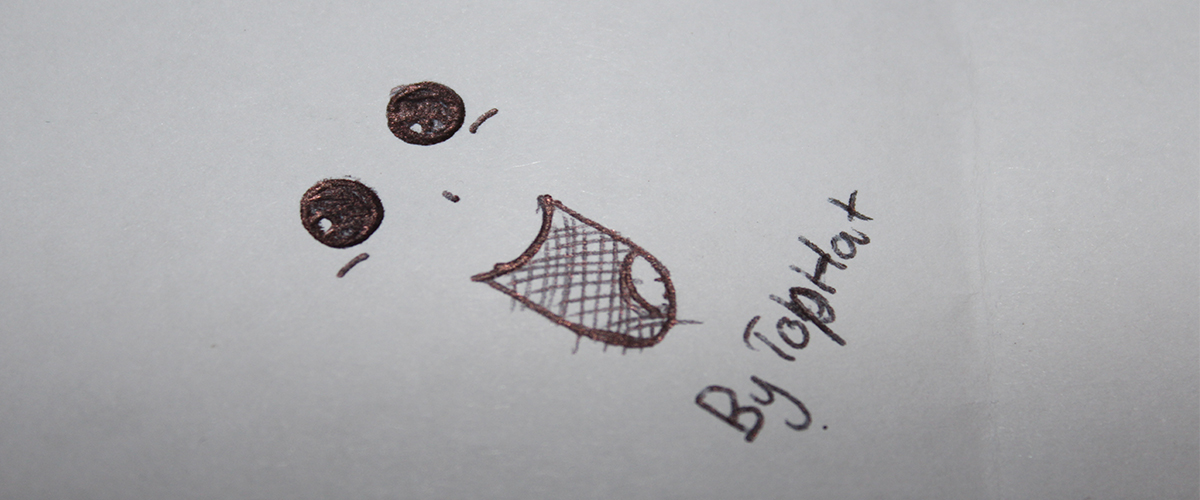 By TopHat